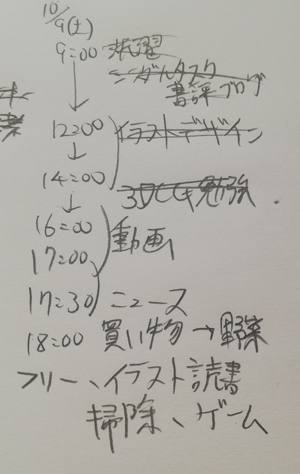 10/9(土)
9:00
書評ブログ
12:00 イラストデザイン
14:00
3DCG勉強
16:00
17:00 動画
17:30 ニュース
18:00 買い物→野菜
フリー、イラスト読書
掃除、ゲーム